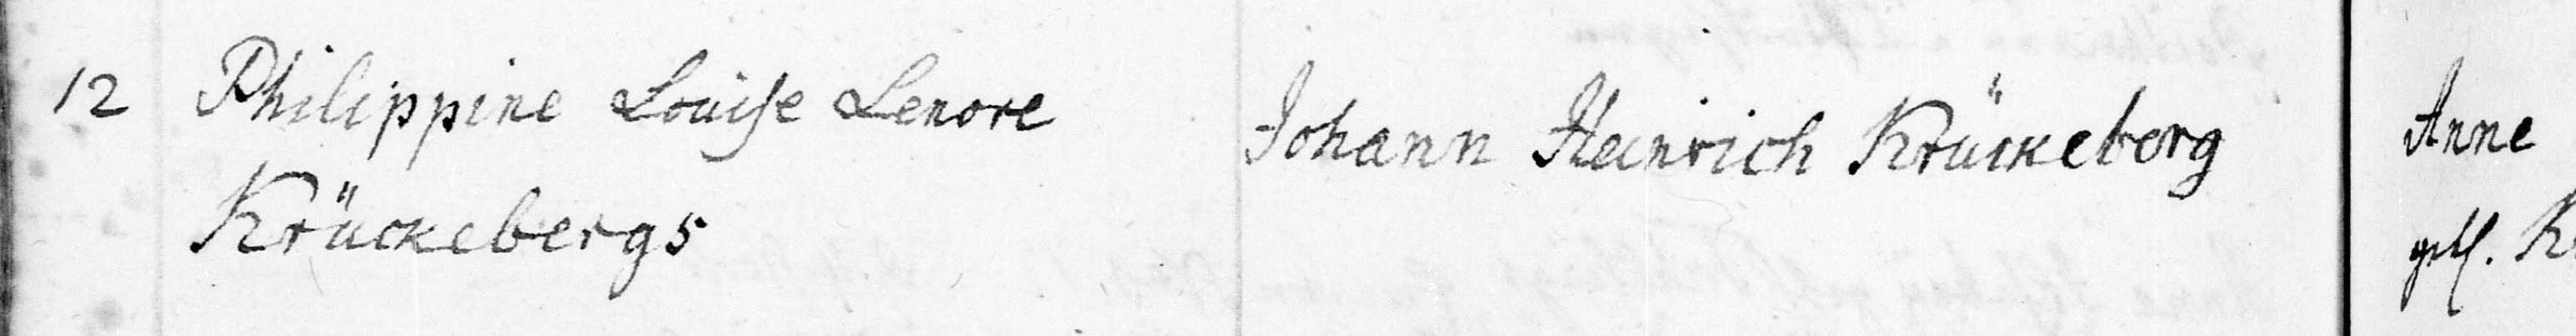 12 Philippine Louise Lenore
Krückebergs
Johann Heinrich Krückeberg
Anne
geb. K